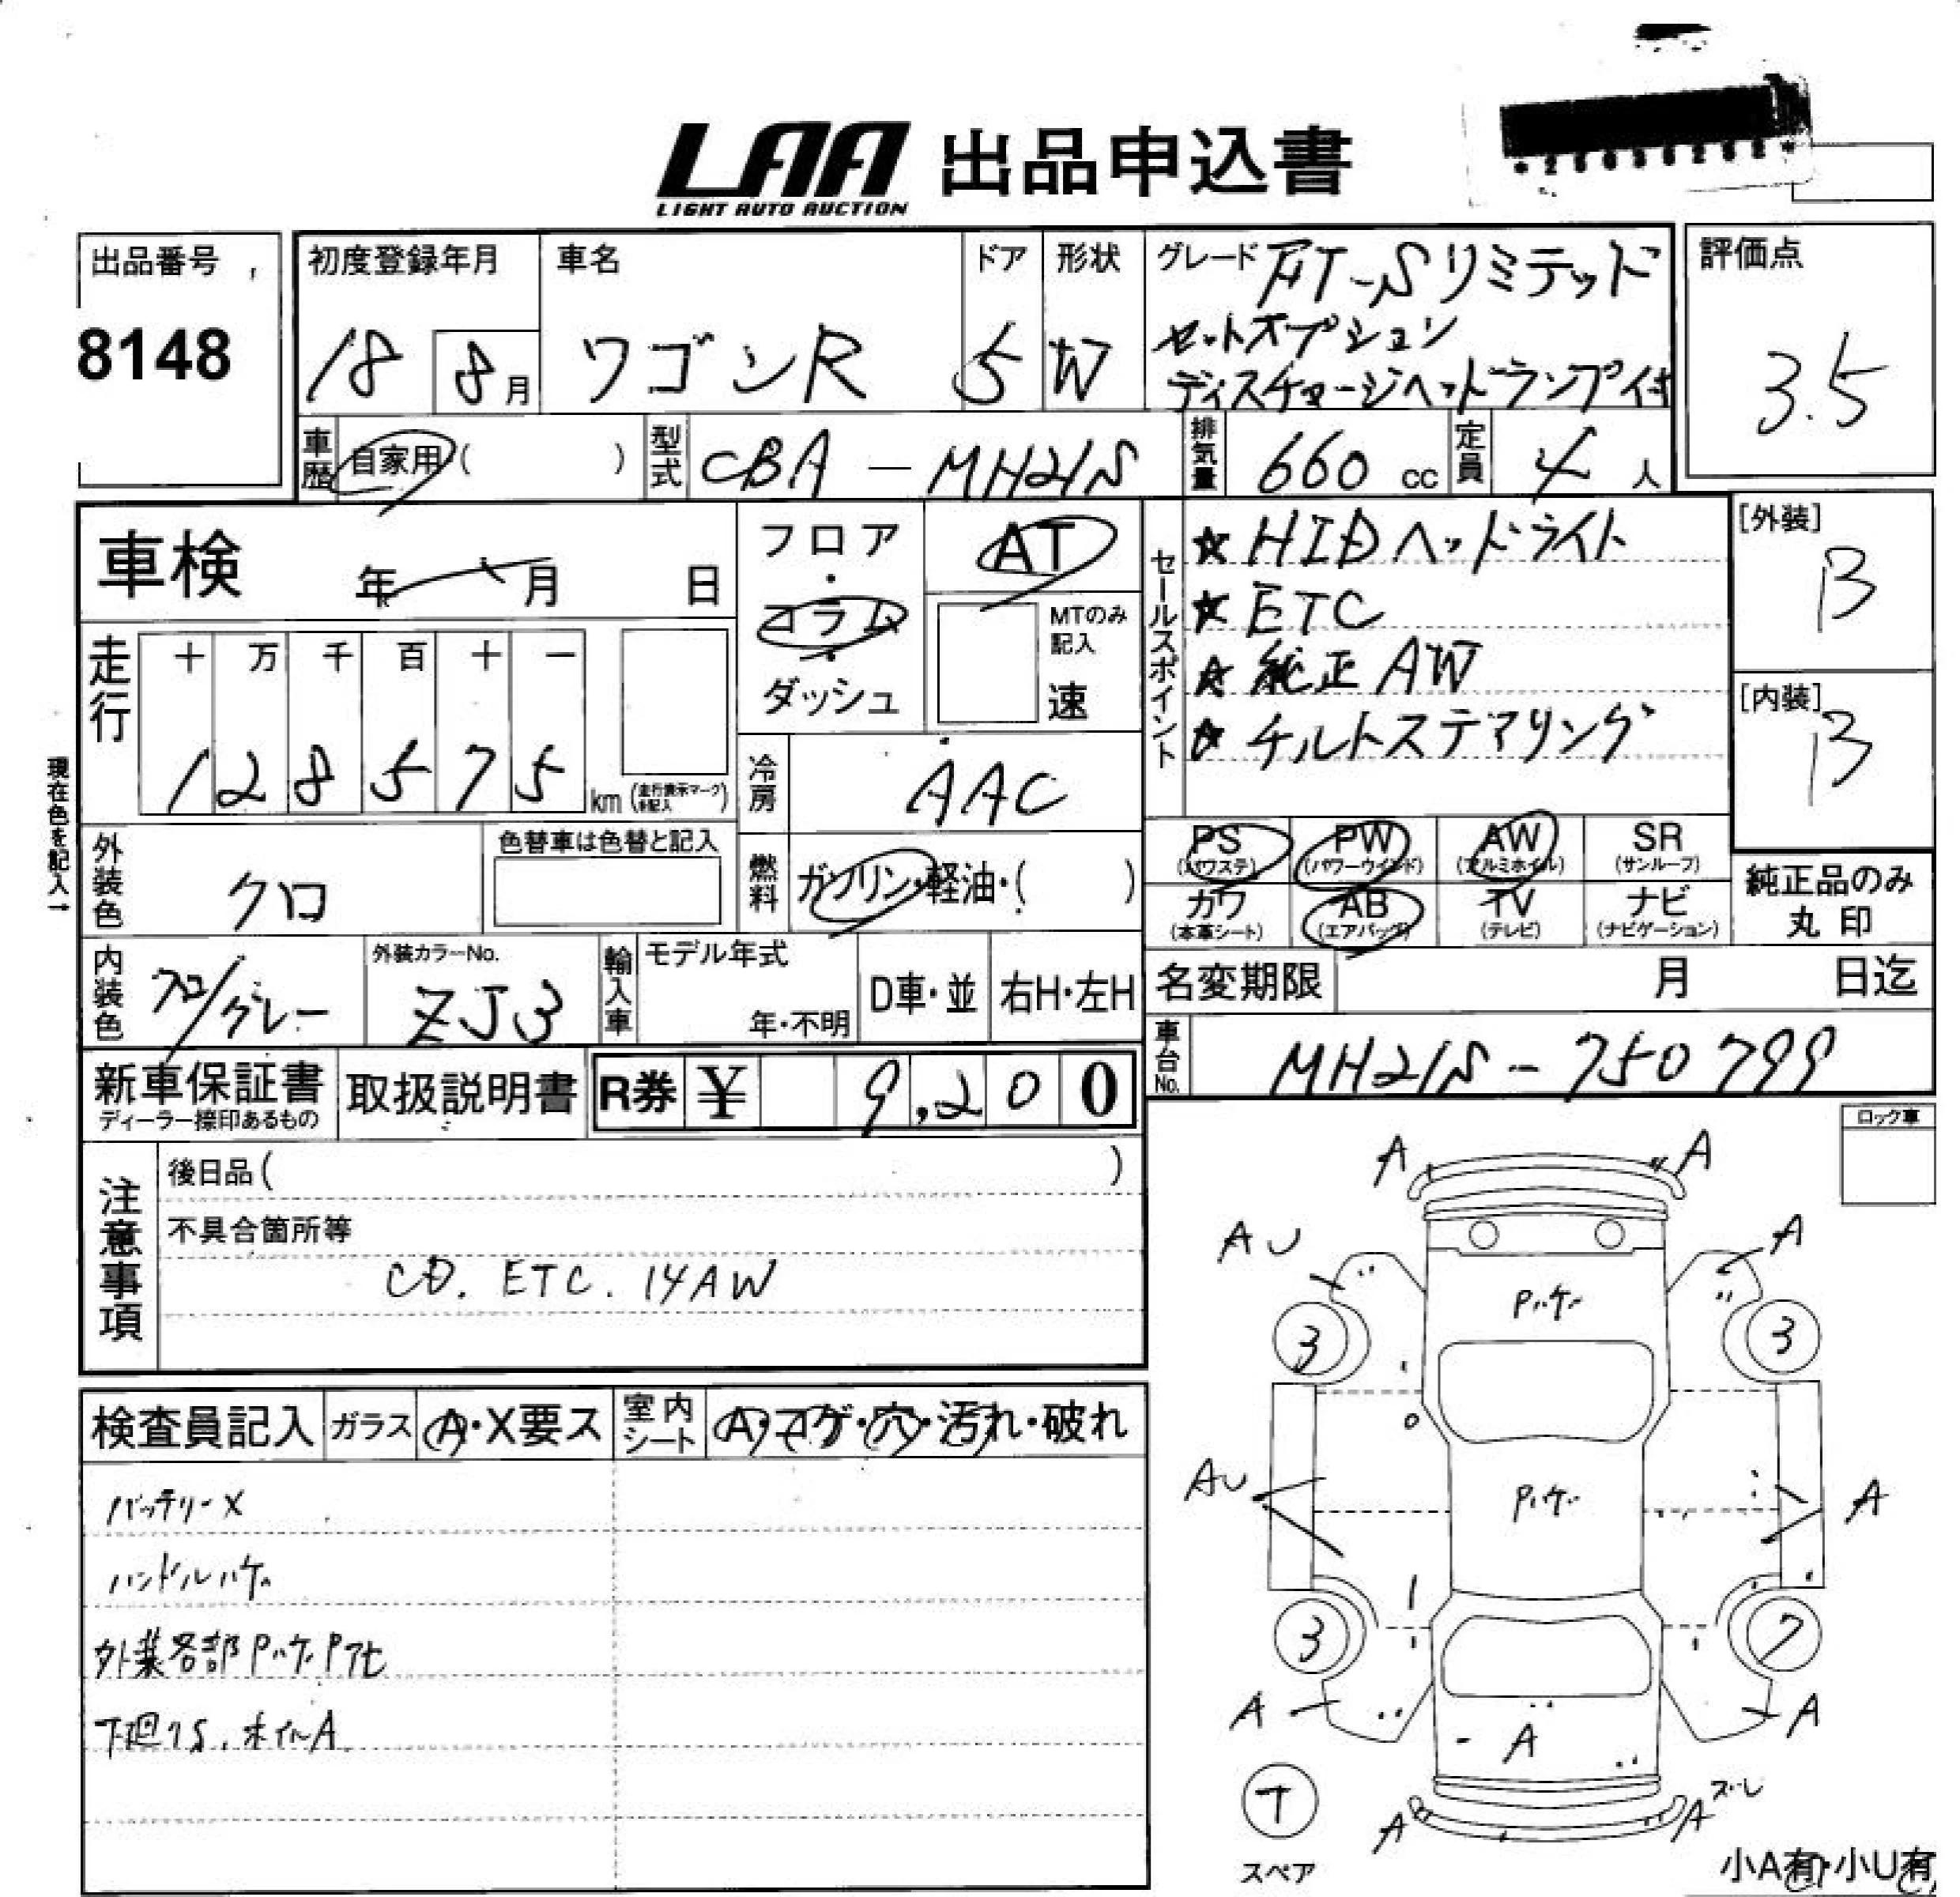 LAA 出品申込書
LIGHT AUTO AUCTION
出品番号
8148
初度登録年月
18 8月
車名
ワゴンR
ドア
5
形状
W
グレード FT-Sリミテッド
セットオプション
ディスチャージヘッドランプ付
評価点
3.5
車歴 自家用 ( )
型式 CBA-MH21S
排気量 660 cc
定員 4 人
車検 年 月 日
フロア・コラム・ダッシュ
AT
MTのみ記入
速
セールスポイント
☆ HIDヘッドライト
☆ ETC
☆ 純正AW
☆ チルトステアリング
[外装]
B
[内装]
B
走行
十 万 千 百 十 一
1 2 8 5 7 5 km (走行表示マーク 未記入)
現在色を記入→
冷房 AAC
外装色 クロ
色替車は色替と記入
燃料 ガソリン・軽油・( )
PS (パワステ)
PW (パワーウインド)
AW (アルミホイル)
SR (サンルーフ)
カワ (本革シート)
AB (エアバック)
TV (テレビ)
ナビ (ナビゲーション)
純正品のみ
丸印
内装色 クロ/グレー
外装カラーNo.
ZJ3
輸入車
モデル年式
年・不明
D車・並
右H・左H
名変期限 月 日迄
車台No. MH21S-750799
新車保証書
ディーラー捺印あるもの
取扱説明書
R券 ¥ 9,200
ロック車
注意事項
後日品( )
不具合箇所等
CD. ETC. 14AW
検査員記入
ガラス A・X要ス
室内シート A・コゲ・穴・汚れ・破れ
バッテリーX
ハンドルハゲ
外装各部Pハゲ Pアセ
下廻りS. ホイルA
A A
AU A
Pハゲ
3 3
AU Pハゲ A
3 7
A A
A
T
スペア
A Aズレ
小A有・小U有